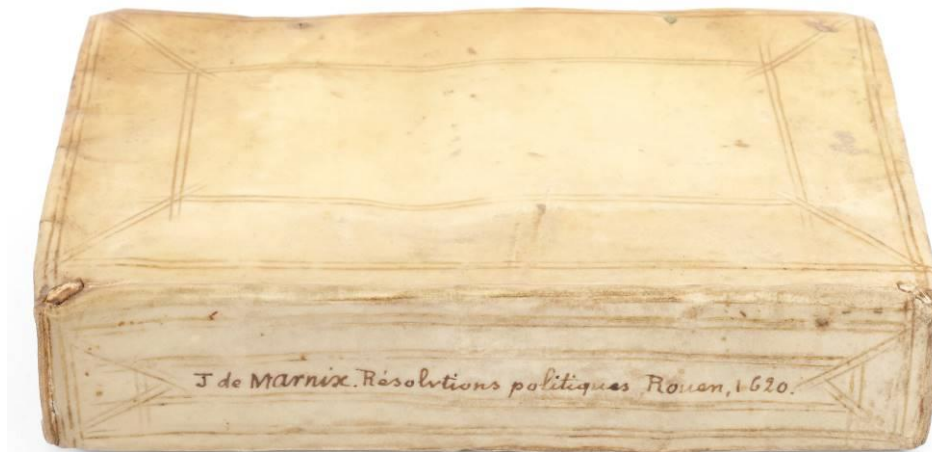 J de Marnix. Résolvtions politiques Rouen, 1620.